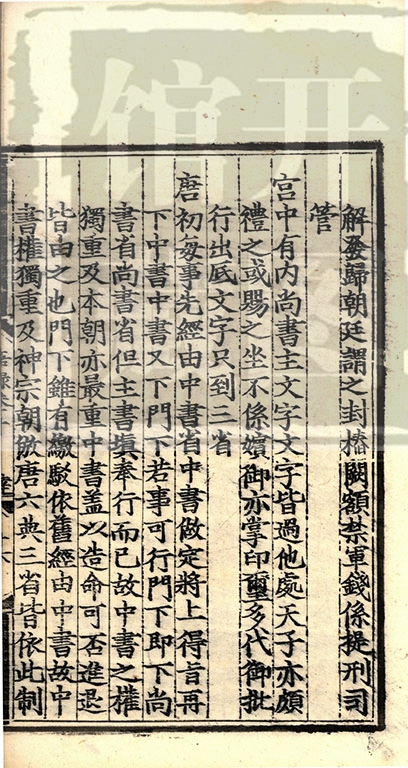 解發歸朝廷謂之封樁闕額禁軍錢係提刑司
管
宮中有內尚書主文字文字皆過他處天子亦頗
禮之或賜之坐不係嬪御亦掌印璽多代御批
行出底文字只到三省
唐初每事先經由中書省中書做定將上得旨再
下中書中書又下門下若事可行門下即下尚
書省尚書省但主書填奉行而已故中書之權
獨重及本朝亦最重中書蓋以造命可否進退
皆由之也門下雖有繳駁依舊經由中書故中
書權獨重及神宗朝倣唐六典三省皆依此制
开
馆